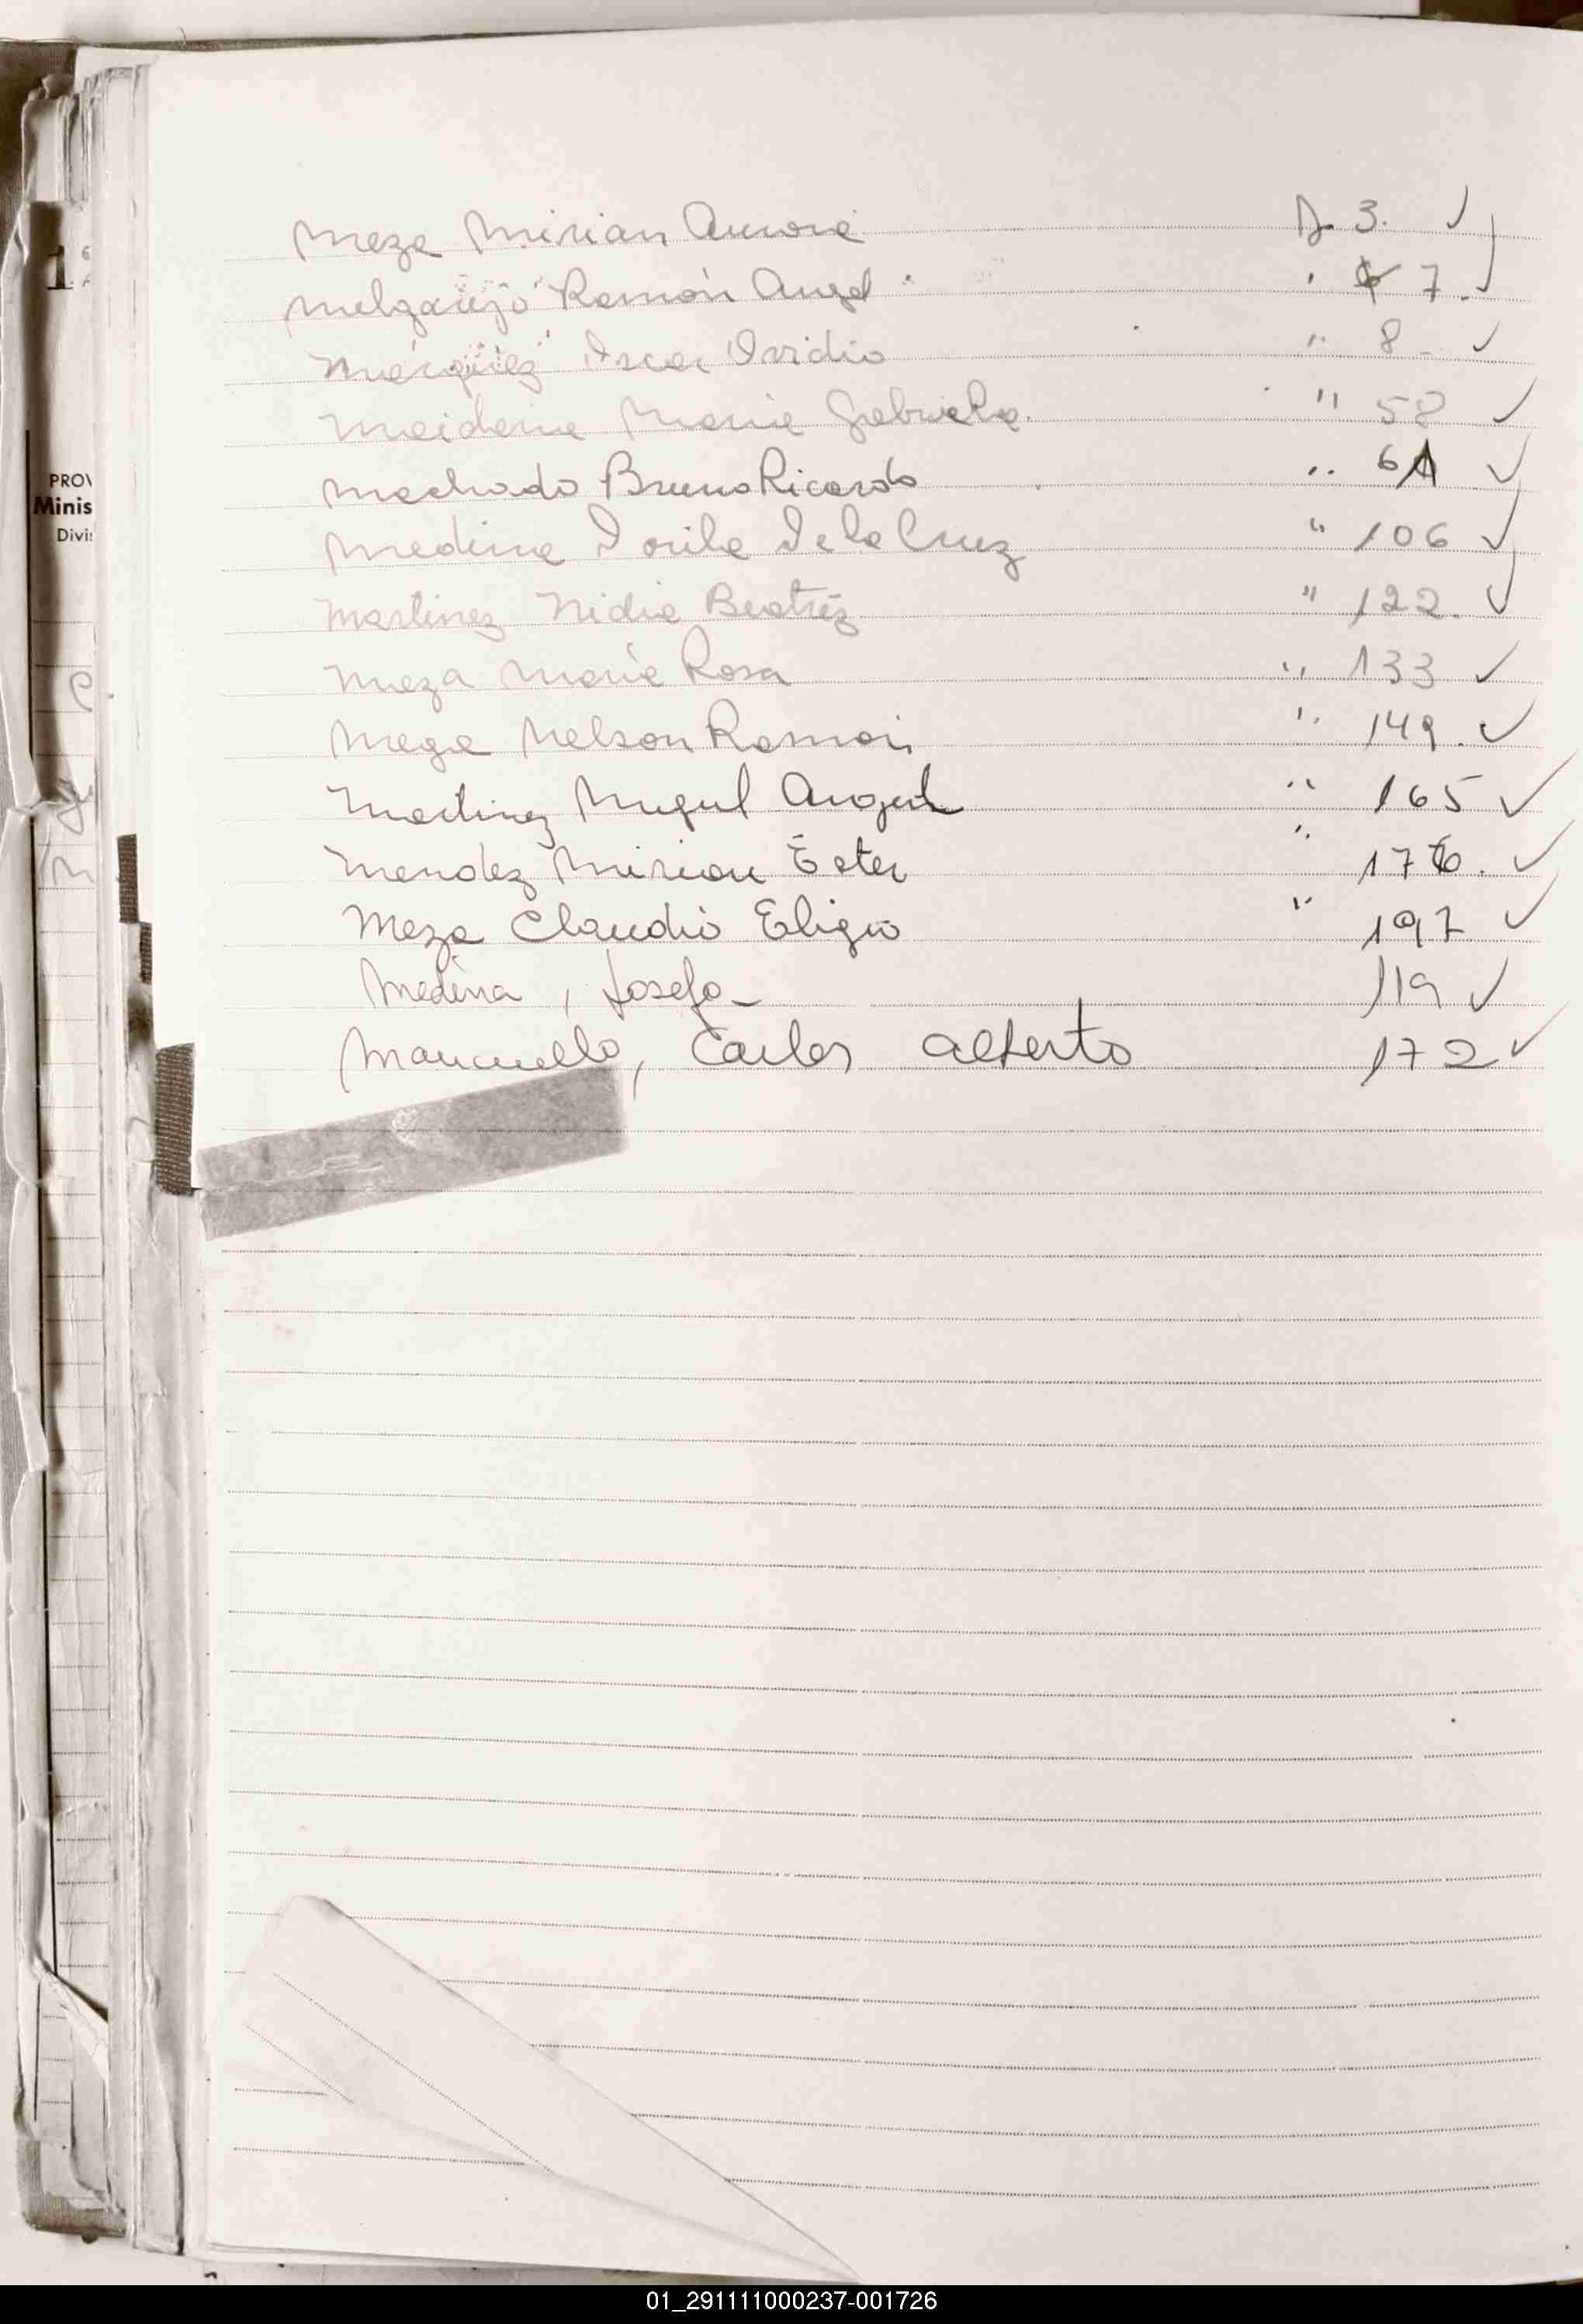 Meza Mirian Aurora A. 3. ✓
Melgarejo Ramón Angel " 7.
Márquez Oscar Ovidio " 8 - ✓
Maidana Maria Gabriela. " 58 ✓
Machado Bruno Ricardo " 61 ✓
Medina Dorila De la Cruz " 106 ✓
Martinez Nidia Beatríz " 122. ✓
Meza María Rosa " 133 ✓
Meza Nelson Ramón " 149. ✓
Martinez Miguel Angel " 165 ✓
Mendez Mirian Ester " 176. ✓
Meza Claudio Eligio " 197 ✓
Medina, Josefa - 119 ✓
Mancuello, Carlos Alberto 172 ✓
PROV
Minis
Divi
01_291111000237-001726